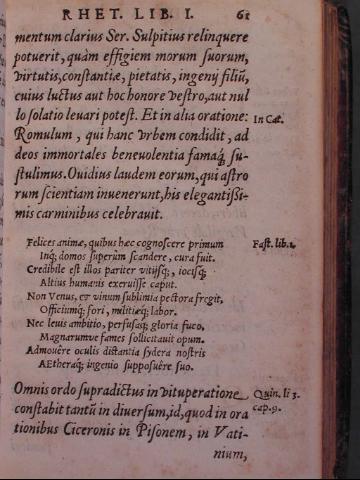 RHET. LIB. I. 61
mentum clarius Ser. Sulpitius relinquere
potuerit, quàm effigiem morum suorum,
virtutis, constantiæ, pietatis, ingenij filiũ,
cuius luctus aut hoc honore vestro, aut nul
lo solatio leuari potest. Et in alia oratione:
Romulum, qui hanc vrbem condidit, ad
In Cat.
deos immortales beneuolentia famaq́; su-
stulimus. Ouidius laudem eorum, qui astro
rum scientiam inuenerunt, his elegantissi-
mis carminibus celebrauit.
Felices animæ, quibus hæc cognoscere primum
Fast. lib. 1.
Inq́; domos superùm scandere, cura fuit.
Credibile est illos pariter vitijsq́;, iocisq́;
Altius humanis exeruisse caput.
Non Venus, et vinum sublimia pectora fregit,
Officiumq́; fori, militiæq́; labor.
Nec leuis ambitio, perfusaq́; gloria fuco,
Magnarumve fames sollicitauit opum.
Admouêre oculis distantia sydera nostris
AEtheraq́; ingenio supposuêre suo.
Omnis ordo supradictus in vituperatione
Quin. li 3.
constabit tantũ in diuersum, id, quod in ora
cap. 9.
tionibus Ciceronis in Pisonem, in Vati-
nium,